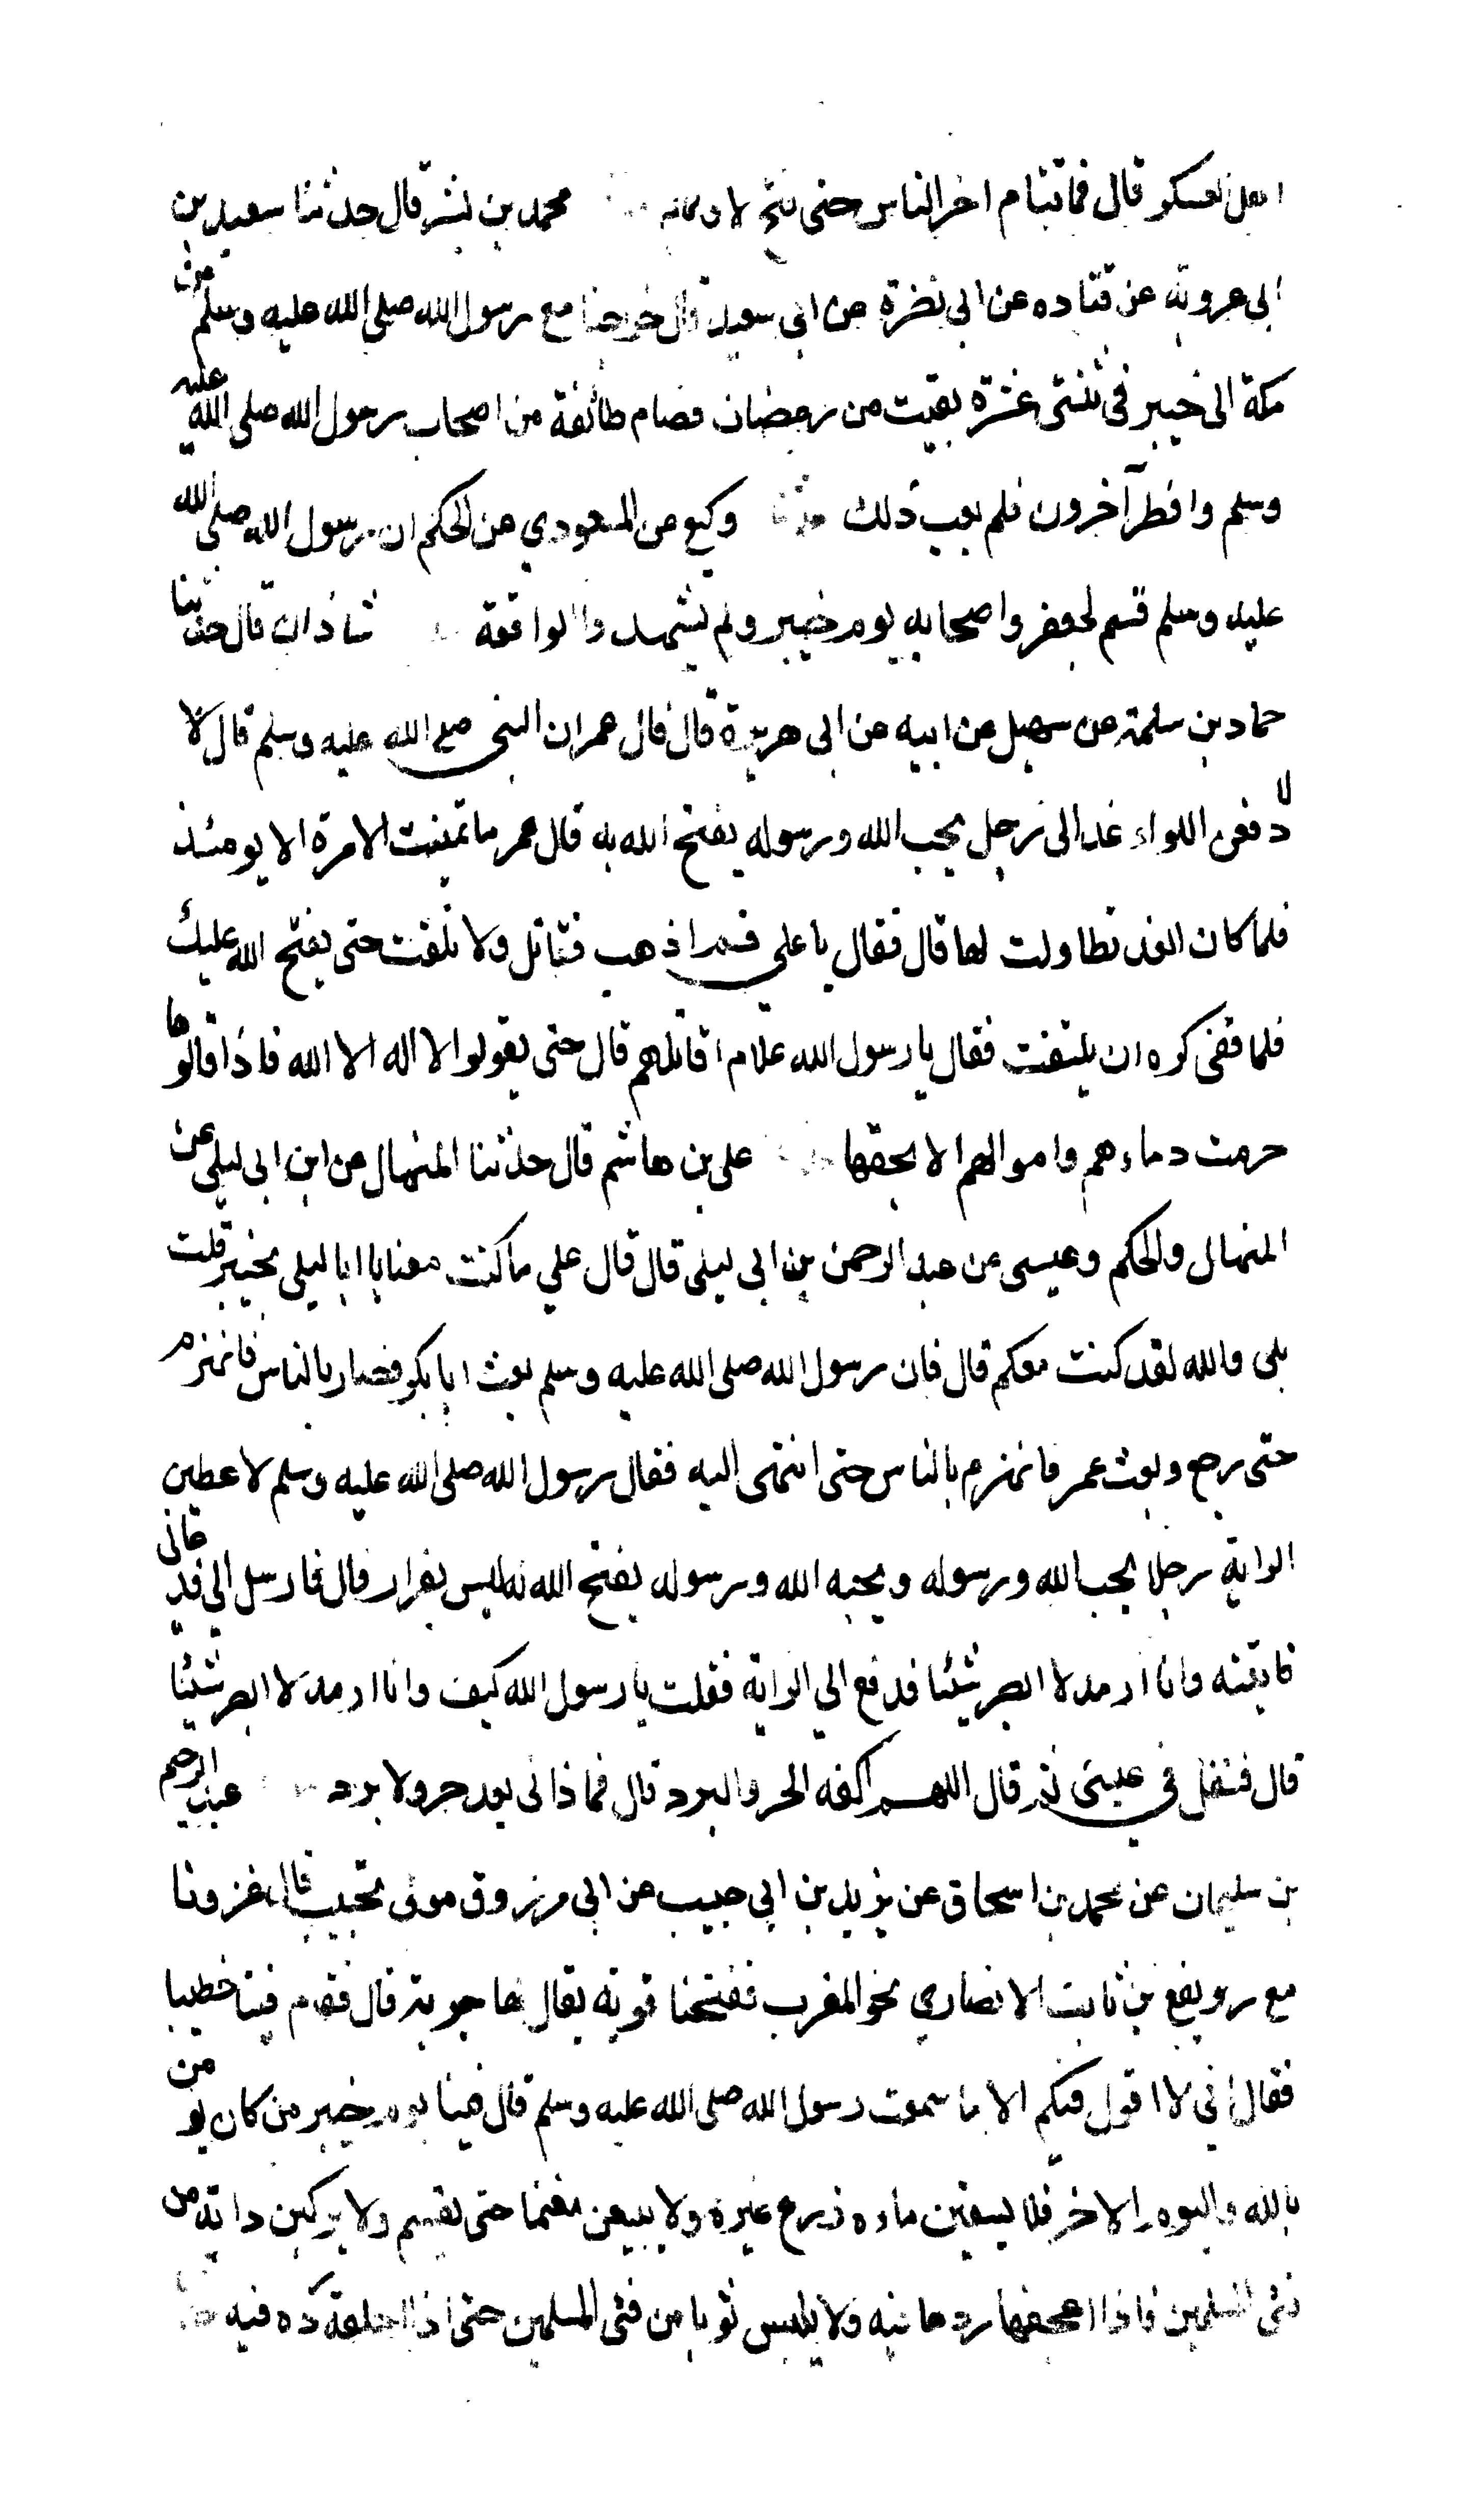 اهل العسكر قال فما تتام اخر الناس حتى فتح لاولهم محمد بن بشر قال حدثنا سعيد بن
ابى عروبة عن قتاده عن ابى نضرة عن ابى سعيد قال خرجنا مع رسول الله صلى الله عليه وسلم من
مكة الى خيبر فى ثنتى عشرة بقيت من رمضان فصام طائفة من اصحاب رسول الله صلى الله عليه
وسلم وافطر آخرون فلم يعب ذلك حدثنا وكيع عن المسعودي عن الحكم ان رسول الله صلى الله
عليه وسلم قسم لجعفر واصحابه يوم خيبر ولم يشهدوا الواقعة شاذان قال حدثنا
حماد بن سلمة عن سهيل عن ابيه عن ابى هريرة قال قال عمر ان النبى صلى الله عليه وسلم قال لا
لا دفعن اللواء غدا الى رجل يحب الله ورسوله يفتح الله به قال عمر ما تمنيت الامرة الا يومئذ
فلما كان الغد تطاولت لها قال فقال يا على قم اذهب فقاتل ولا تلفت حتى يفتح الله عليك
فلما قفى كره ان يلتفت فقال يا رسول الله علام اقاتلهم قال حتى يقولوا لا اله الا الله فاذا قالوها
حرمت دماءهم واموالهم الا بحقها على بن هاشم قال حدثنا المنهال عن ابن ابى ليلى عن
المنهال والحكم وعيسى عن عبد الرحمن بن ابى ليلى قال قال علي ما كنت معنا يا ابا ليلى بخيبر قلت
بلى والله لقد كنت معكم قال فان رسول الله صلى الله عليه وسلم بعث ابا بكر فصار بالناس فانهزم
حتى رجع وبعث عمر فانهزم بالناس حتى انتهى اليه فقال رسول الله صلى الله عليه وسلم لاعطين
الراية رجلا يحب الله ورسوله ويحبه الله ورسوله يفتح الله له ليس بفرار قال فارسل الي فدعانى
فاتيته وانا ارمد لا ابصر شيئا فدفع الي الراية فقلت يا رسول الله كيف وانا ارمد لا ابصر شيئا
قال فتفل في عينى ثم قال اللهم اكفه الحر والبرد قال فما ذانى بعد حر ولا برد عبد الرحيم
بن سليمان عن محمد بن اسحاق عن يزيد بن ابي حبيب عن ابي مرزوق مولى تجيب قال غزونا
مع رويفع بن ثابت الانصاري نحو المغرب ففتحنا قرية يقال لها جربة قال فقام فينا خطيبا
فقال اني لا اقول فيكم الا ما سمعت رسول الله صلى الله عليه وسلم قال فينا يوم خيبر من كان يؤمن
بالله واليوم الاخر فلا يسقين ماءه زرع غيره ولا يبيعن مغنما حتى يقسم ولا يركبن دابة من
فئ المسلمين فاذا اعجفها رد ها فيه ولا يلبس ثوبا من فئ المسلمين حتى اذا اخلقه رده فيه